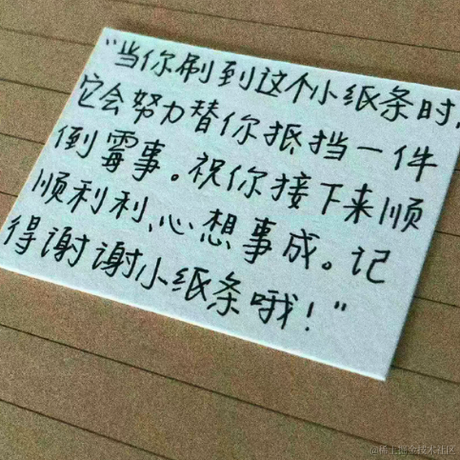 "当你刷到这个小纸条时,
它会努力替你抵挡一件
倒霉事。祝你接下来顺
顺利利,心想事成。记
得谢谢小纸条哦!"
@稀土掘金技术社区